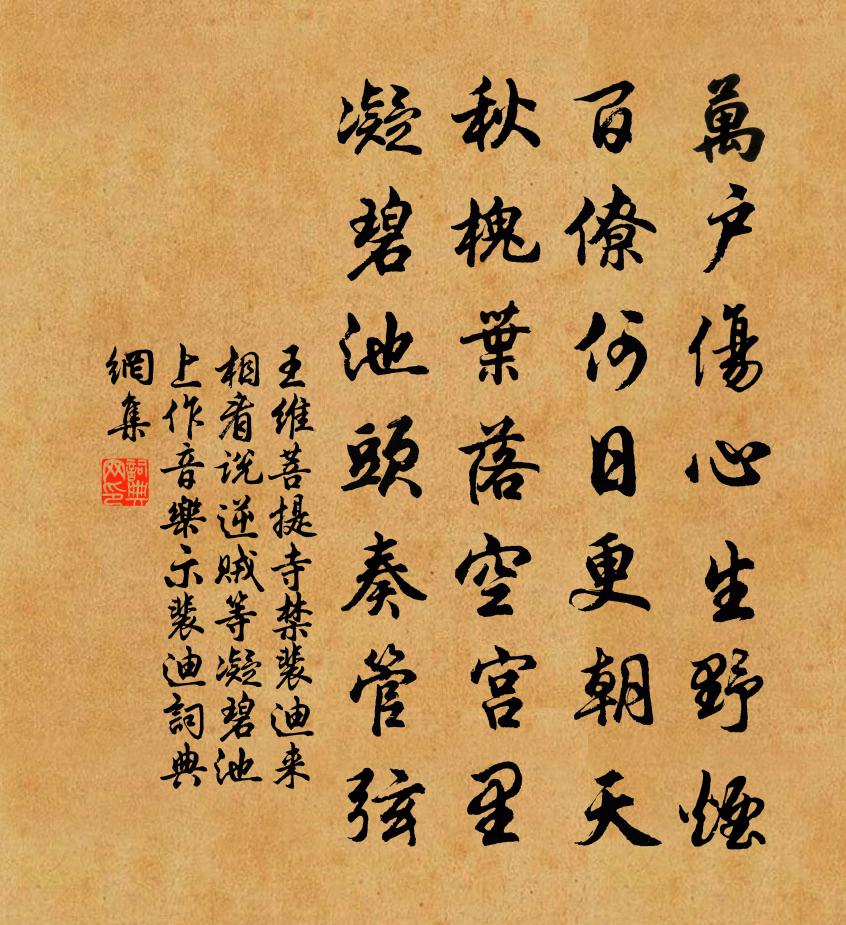 萬戶傷心生野煙
百僚何日更朝天
秋槐葉落空宮里
凝碧池頭奏管弦
王維菩提寺禁裴迪来
相看説逆賊等凝碧池
上作音樂示裴迪詞典
網集
詞典
网印